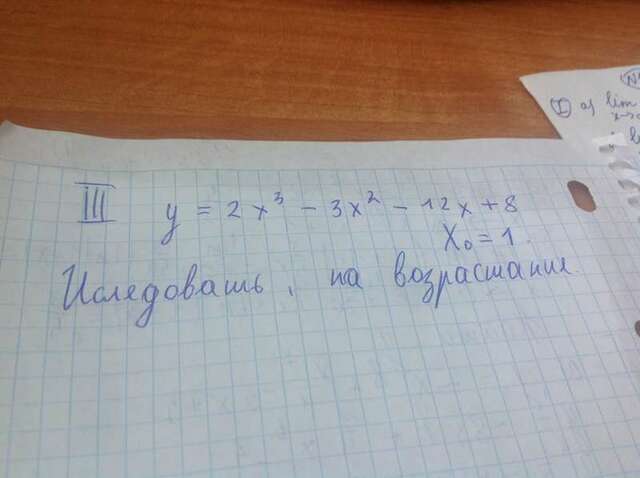 III y = 2x³ - 3x² - 12x + 8
X₀ = 1.
Иследовать, на возрастание.
I a) lim